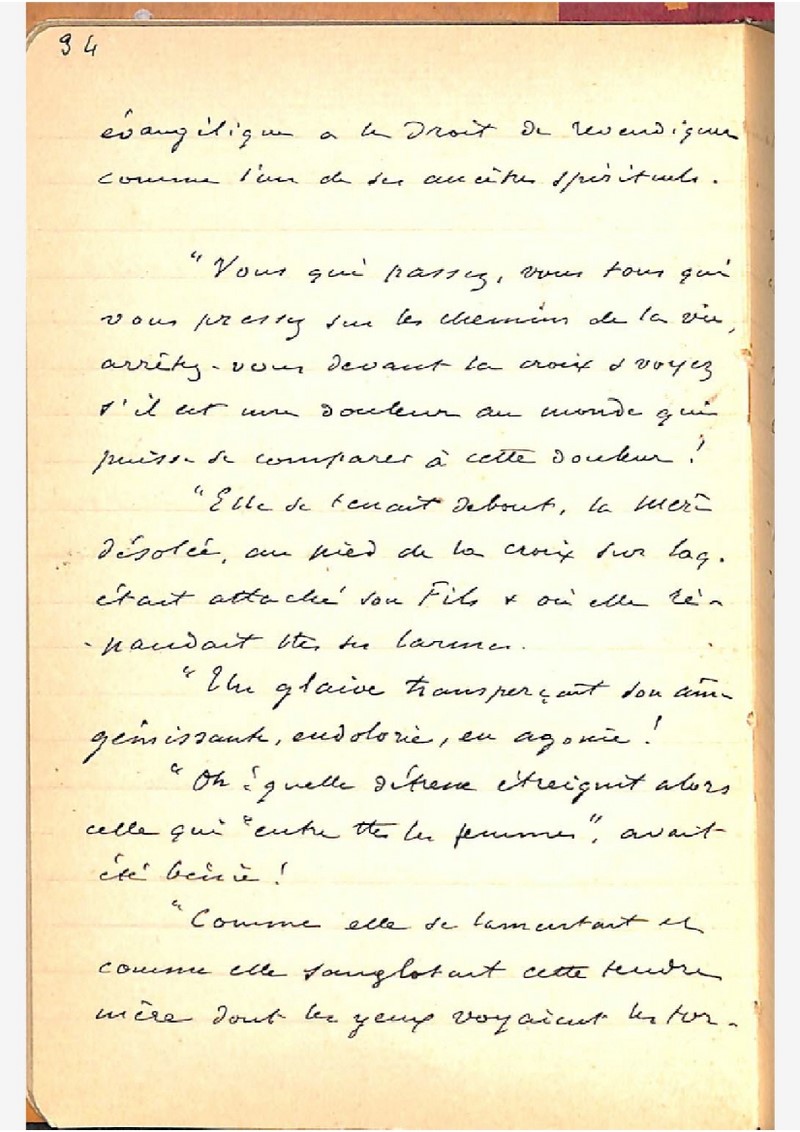 94
évangélique a le droit de revendiquer
comme l'un de ses ancêtres spirituels.
"Vous qui passez, vous tous qui
vous pressez sur les chemins de la vie,
arrêtez-vous devant la croix & voyez
s'il est une douleur au monde qui
puisse se comparer à cette douleur !
"Elle se tenait debout, la Mère
désolée, au pied de la croix sur laq.
était attaché son Fils & où elle ré-
-pandait ttes ses larmes.
"Un glaive transperçait son âme
gémissante, endolorie, en agonie !
"Oh ! quelle détresse étreignit alors
celle qui "entre ttes les femmes", avait
été bénie !
"Comme elle se lamentait et
comme elle sanglotait cette tendre
mère dont les yeux voyaient les tor-